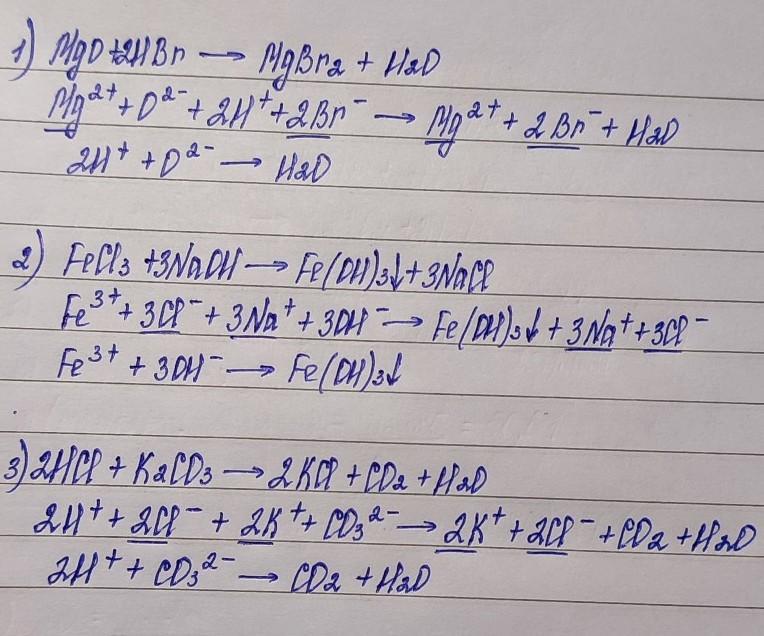 1) MgO+2HBr → MgBr₂ + H₂O
Mg²⁺ + O²⁻ + 2H⁺ + 2Br⁻ → Mg²⁺ + 2Br⁻ + H₂O
2H⁺ + O²⁻ → H₂O
2) FeCl₃ + 3NaOH → Fe(OH)₃↓ + 3NaCl
Fe³⁺ + 3Cl⁻ + 3Na⁺ + 3OH⁻ → Fe(OH)₃↓ + 3Na⁺ + 3Cl⁻
Fe³⁺ + 3OH⁻ → Fe(OH)₃↓
3) 2HCl + K₂CO₃ → 2KCl + CO₂ + H₂O
2H⁺ + 2Cl⁻ + 2K⁺ + CO₃²⁻ → 2K⁺ + 2Cl⁻ + CO₂ + H₂O
2H⁺ + CO₃²⁻ → CO₂ + H₂O